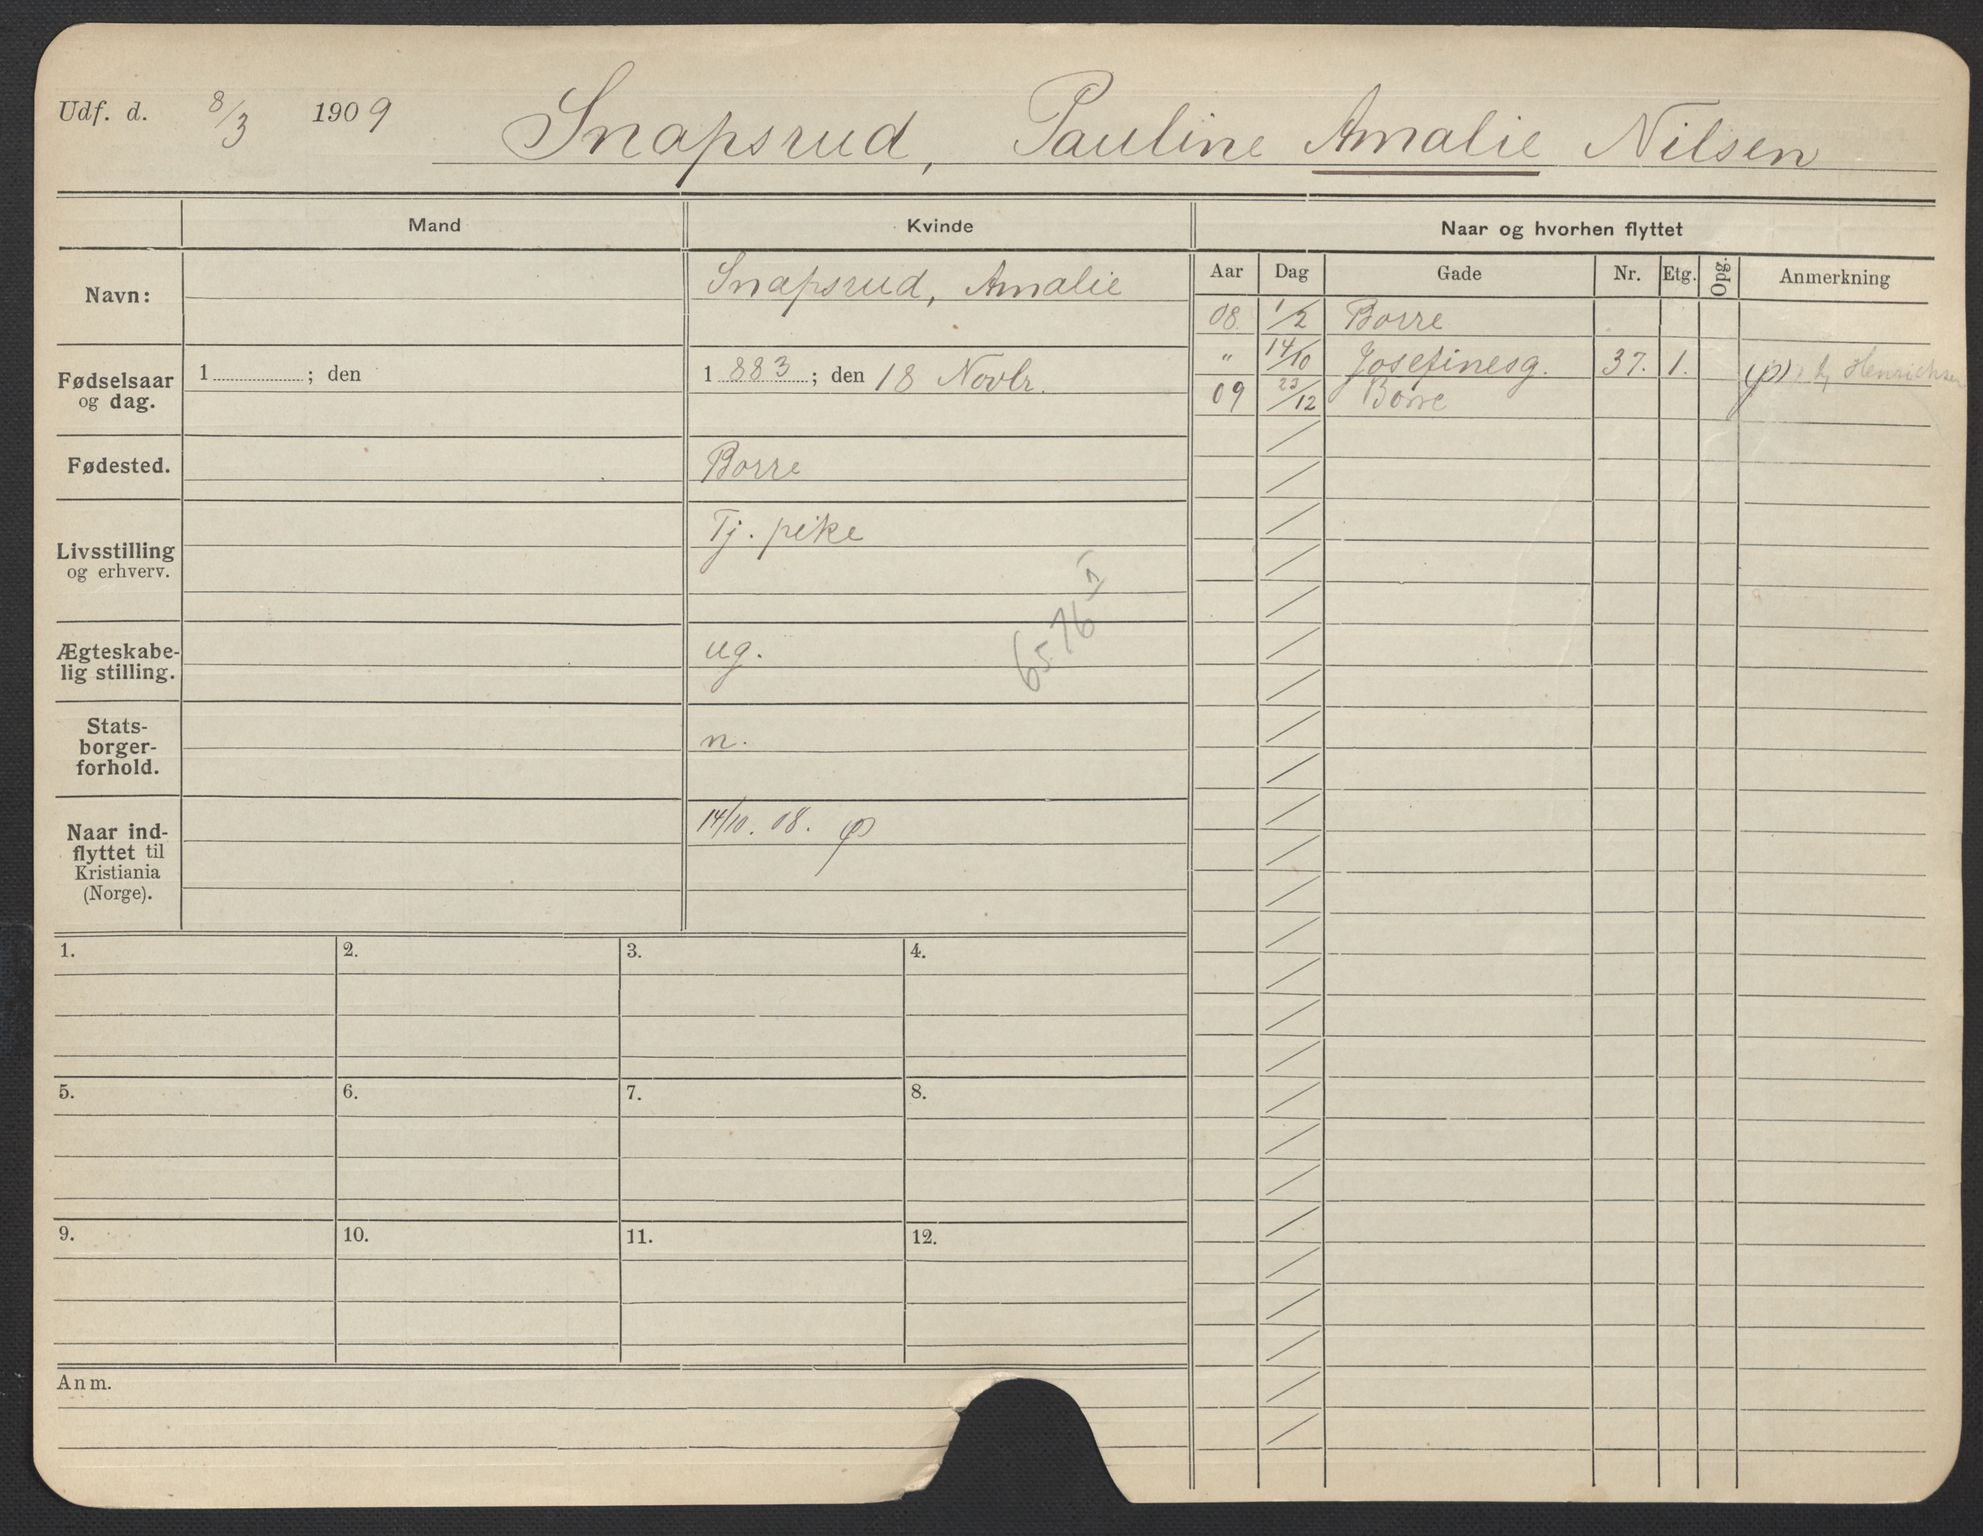 Udf. d. 8/3 1909 Snapsrud, Pauline Amalie Nilsen
Mand Kvinde Naar og hvorhen flyttet
Aar Dag Gade Nr. Etg. Opg. Anmerkning
Navn: Snapsrud, Amalie
08. 1/2 Borre
" 14/10 Josefinesg. 37. 1. Henrichsen
09 23/12 Borre
Fødselsaar
og dag.
1 ; den 1 883 ; den 18 Novbr.
Fødested. Borre
Livsstilling
og erhverv.
Tj. pike
6576 I
Ægteskabe-
lig stilling.
ug.
Stats-
borger-
forhold.
n.
Naar ind-
flyttet til
Kristiania
(Norge).
14/10. 08.
1. 2. 3. 4.
5. 6. 7. 8.
9. 10. 11. 12.
Anm.